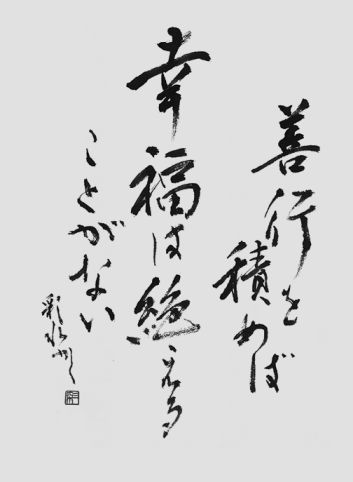 善行を積めば
幸福は絶える
ことがない